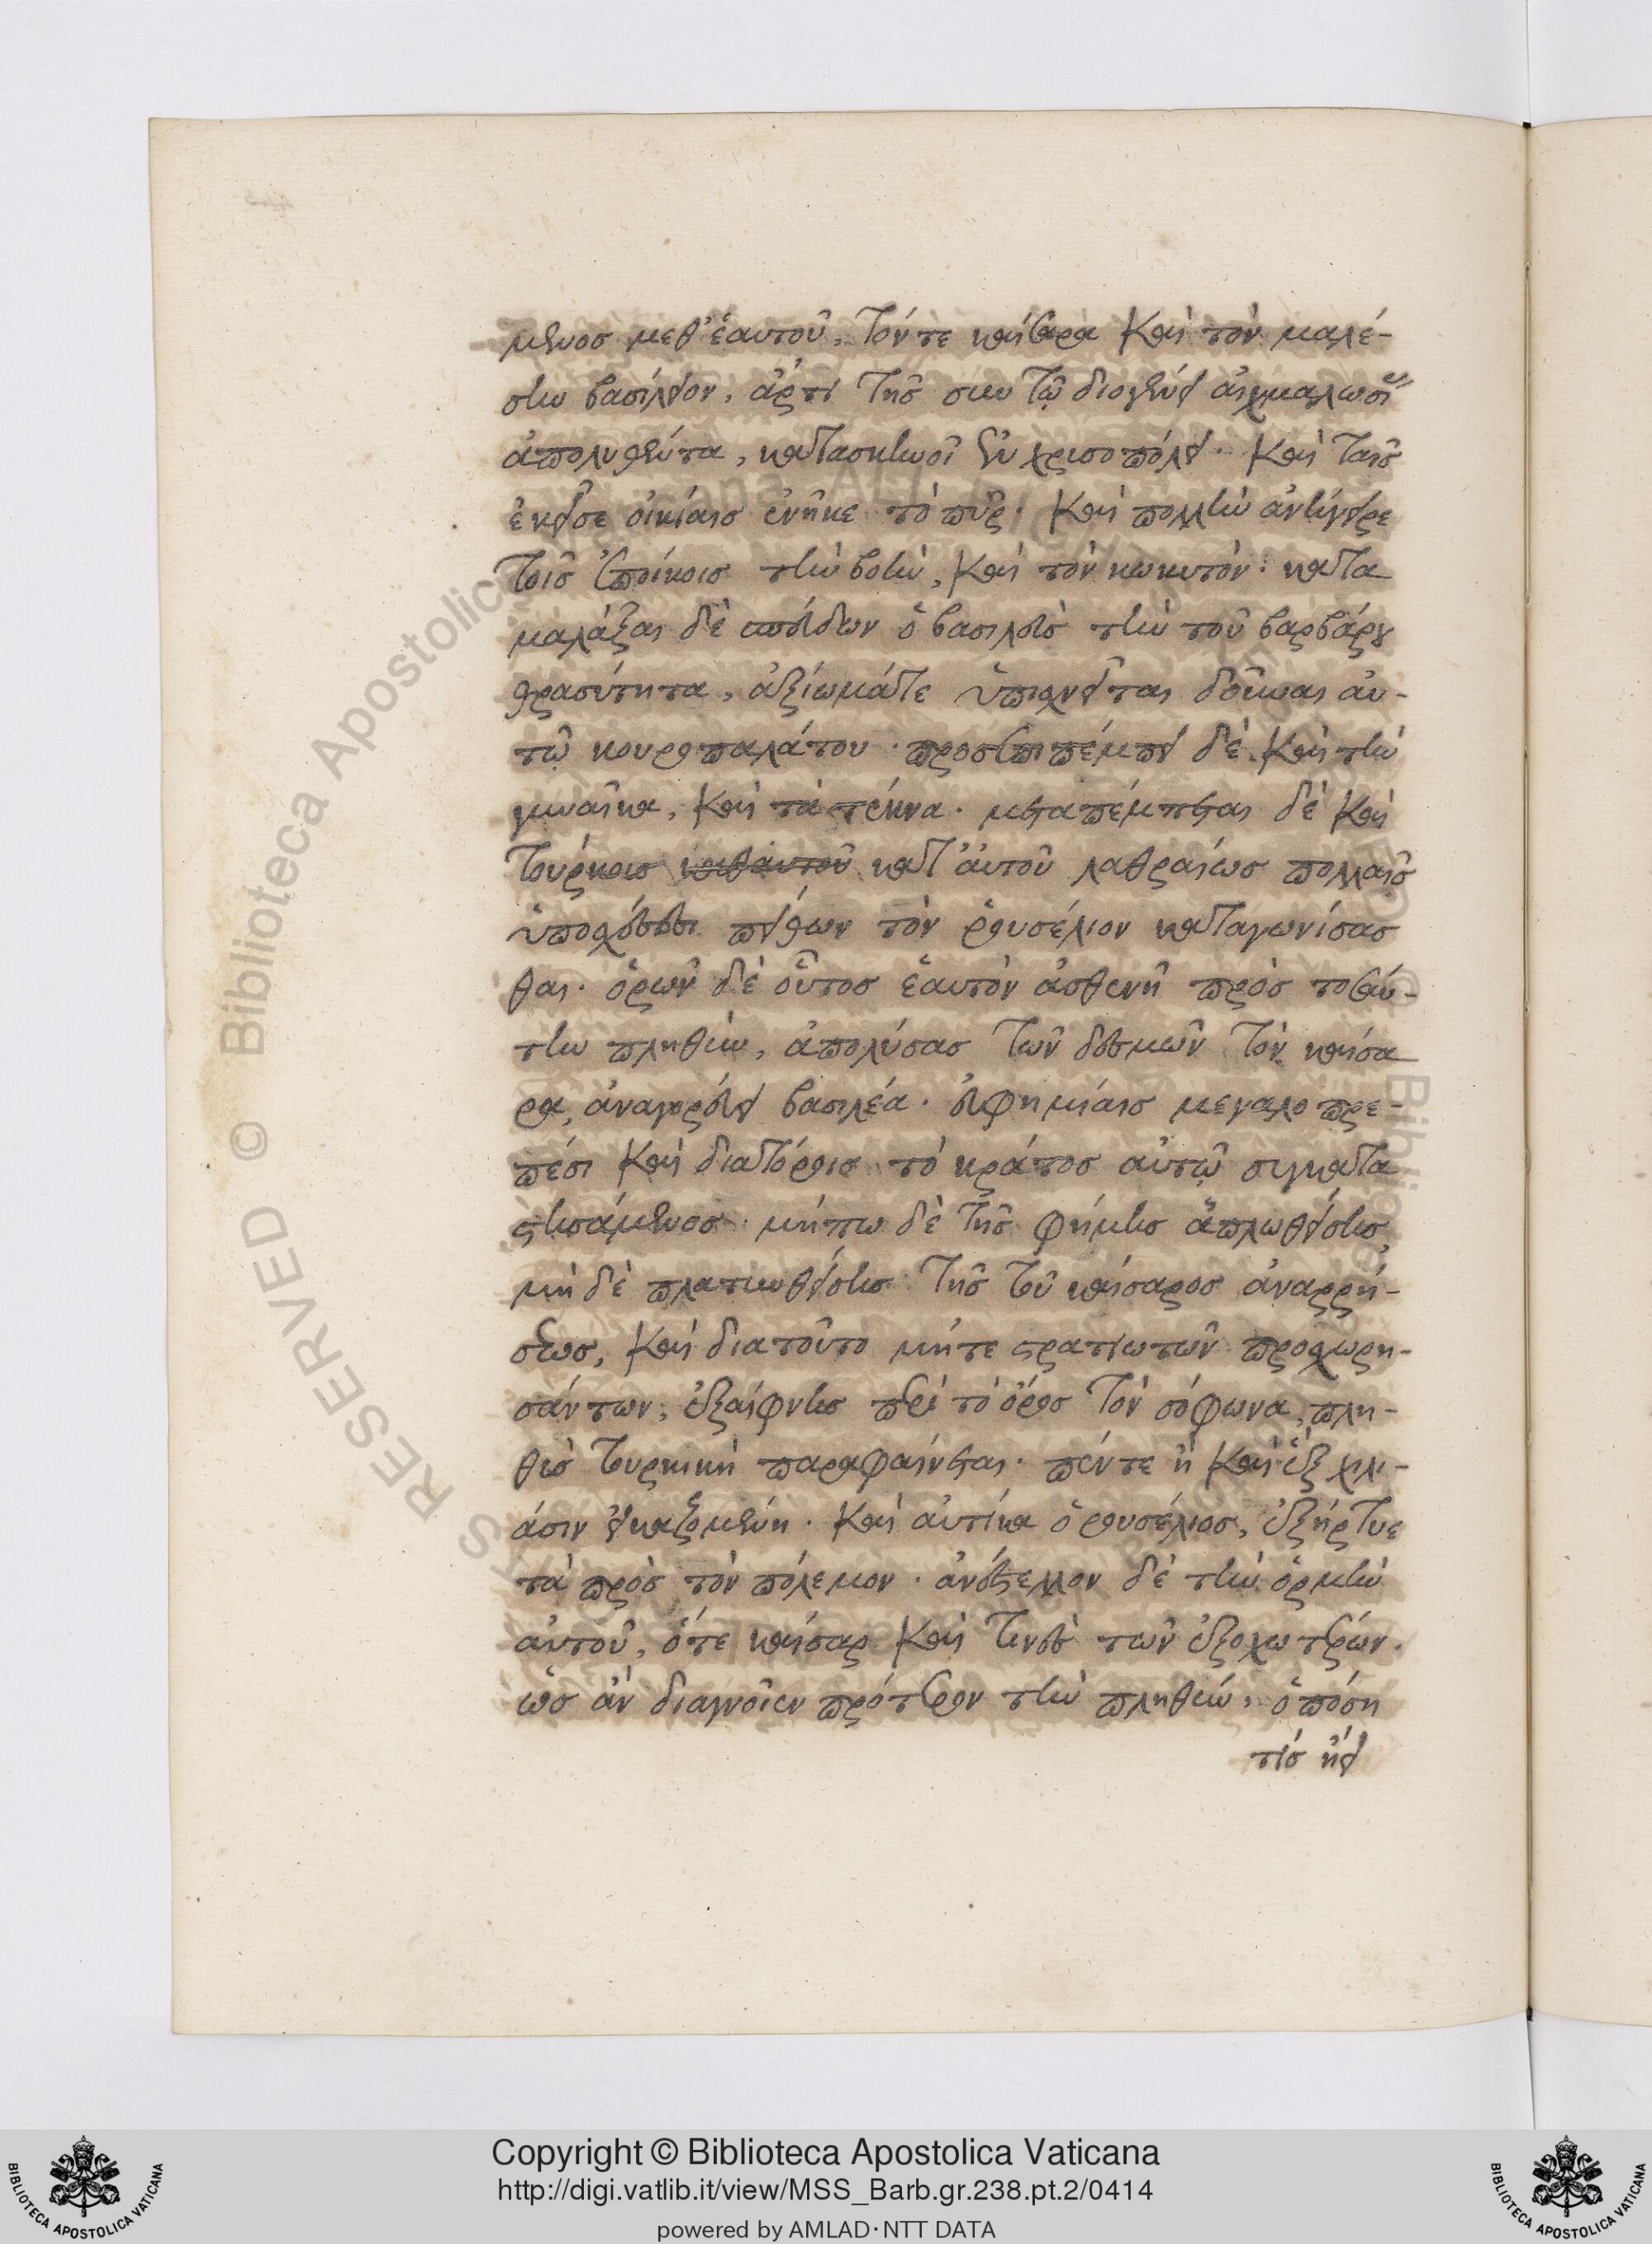 μενος μεθ' ἑαυτοῦ, τόντε καίσαρα καὶ τὸν μαλέ-
σην βασίλειον, ἄρτι τῆς συν τῷ διογένει αἰχμαλωσί
ἀπολυθέντα, κατασκηνοῖ ἐν χρισοπόλει. καὶ ταῖς
ἐκεῖσε οἰκίαις ἐνῆκε τὸ πῦρ. καὶ πολλὴν ἀντήγειρε
τοῖς ἐποίκοις τὴν βοὴν, καὶ τὸν κωκυτόν. κατα
μαλάξαι δὲ σπεύδων ὁ βασιλεὺς τὴν τοῦ βαρβάρου
θρασύτητα, ἀξίωμάτε ὑπισχνεῖται δοῦναι αὐ-
τῷ κουροπαλάτου. προσεπιπέμπει δὲ καὶ τὴν
γυναῖκα, καὶ τὰ τέκνα. μεταπέμπεται δὲ καὶ
τούρκοις κατ' αὐτοῦ λαθραίως πολλαῖς
ὑποσχέσεσι πείθων τὸν ρουσέλιον καταγωνίσασ
θαι. ὁρῶν δὲ οὗτος ἑαυτὸν ἀσθενῆ πρὸς τοσαύ-
την πληθὺν, ἀπολύσας τῶν δεσμῶν τὸν καίσα
ρα, ἀναγορεύει βασιλέα. εὐφημίαις μεγαλοπρε-
πέσι καὶ διατόροις τὸ κράτος αὐτῷ συγκατα
στησάμενος. μήπω δὲ τῆς φήμης ἁπλωθείσης,
μὴ δὲ πλατυνθείσης τῆς τοῦ καίσαρος ἀναρρή-
σεως, καὶ διατοῦτο μήτε στρατιωτῶν προσχωρη-
σάντων, ἐξαίφνης περὶ τὸ ὄρος τὸν σόφωνα, πλη-
θὺς τουρκικὴ παραφαίνεται. πέντε ἢ καὶ ἓξ χιλι-
άσιν εἰκαζομένη. καὶ αὐτίκα ὁ ρουσέλιος, ἐξήρτυε
τὰ πρὸς τὸν πόλεμον. ἀνέστελλον δὲ τὴν ὁρμὴν
αὐτοῦ, ὅτε καίσαρ καὶ τινὲς τῶν ἐξοχωτέρων.
ὡς ἂν διαγνοῖεν πρότερον τὴν πληθὺν, ὁπόση
τίς ᾔει